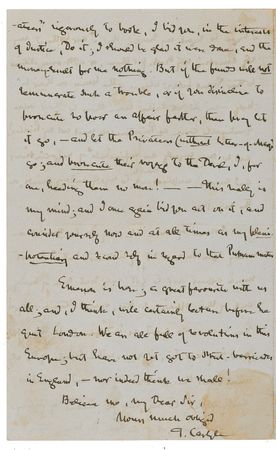 ateers" rigorously to book, I bid you, in the interests
of Justice, Do it; I should be glad it were done, and the
money-result for me nothing. But if the funds will not
remunerate such a trouble, or if you disincline to
prosecute so poor an affair farther, then pray let
it go, — and let the Privateers (without Letter-of-Marque)
go, and prosecute their voyage to the Devil, I, for
one, heeding them no more! — — This really is
my mind; and I once again bid you act on it, and
consider yourself now and at all times as my pleni-
potentiary and ready help in regard to that Putnam matter
Emerson is here; a great favourite with us
all; and, I think, will certainly lecture before he
quit London. We are all full of revolutions in this
Europe; but have not yet got to street-barricades
in England, — nor indeed think we shall!
Believe me, my dear Sir,
Yours much obliged
T. Carlyle